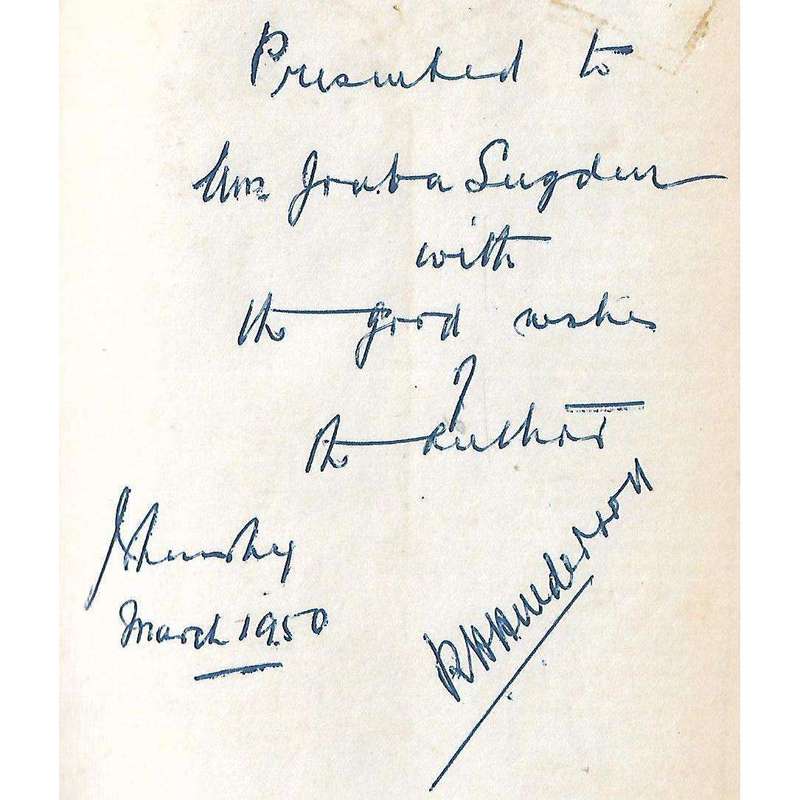 Presented to
Mrs Sugden
with
the good wishes
of
the Author
March 1950
R H Henderson